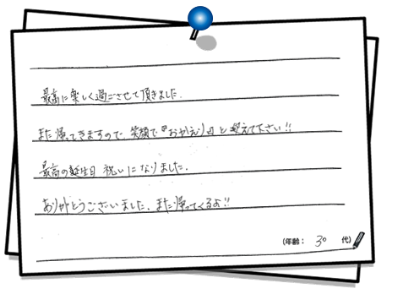 最高に楽しく過ごさせて頂きました.
また帰ってきますので 笑顔で『おかえり』と迎えて下さい!!
最高の誕生日祝いになりました.
ありがとうございました. また帰ってくるよ!!
(年齢: 30 代)